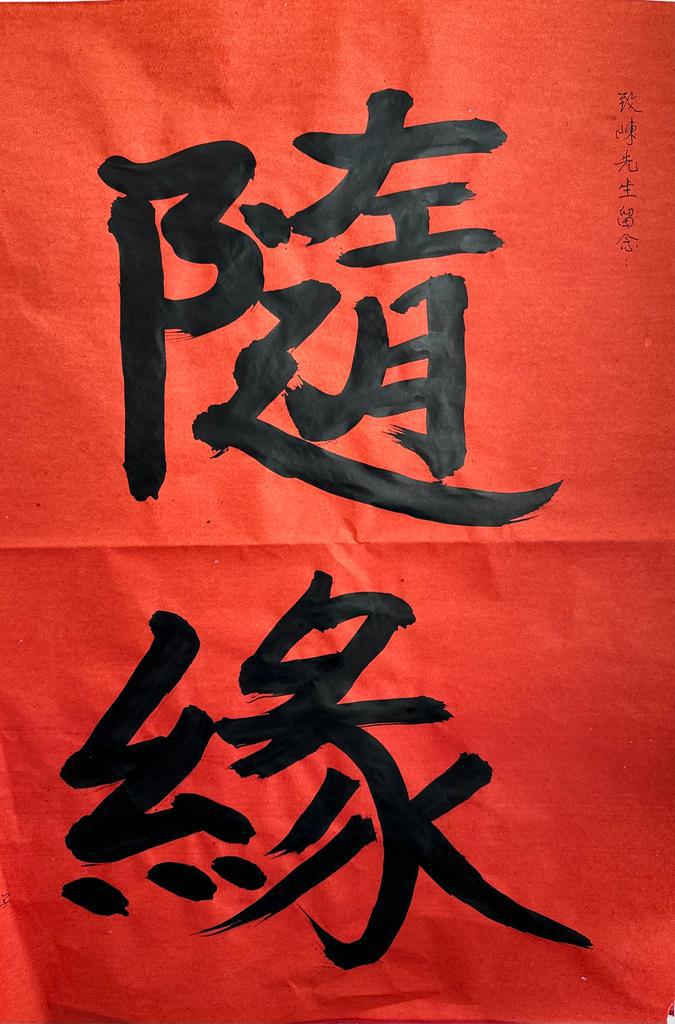 致陳先生留念
隨緣